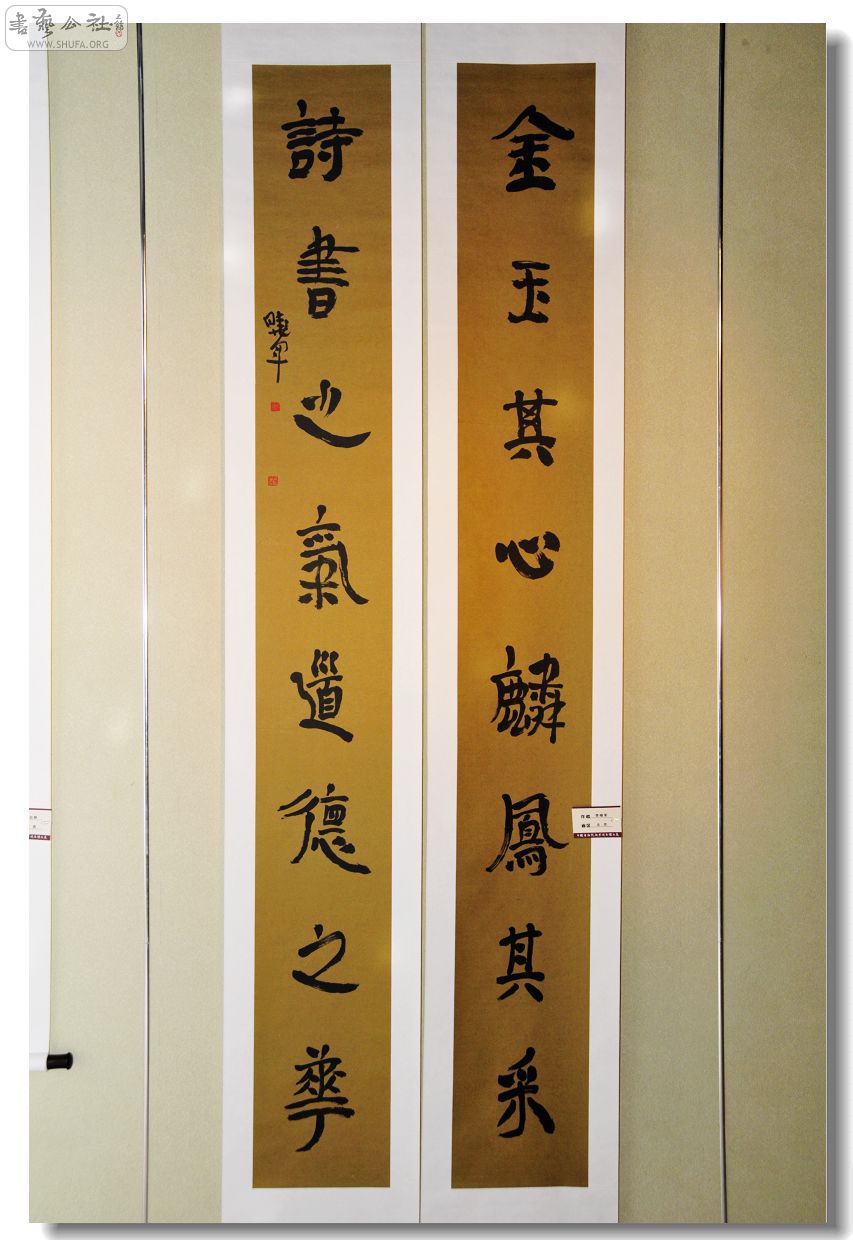 金玉其心麟鳳其采
詩書之氣道德之華
曉軍
書藝公社
WWW.SHUFA.ORG